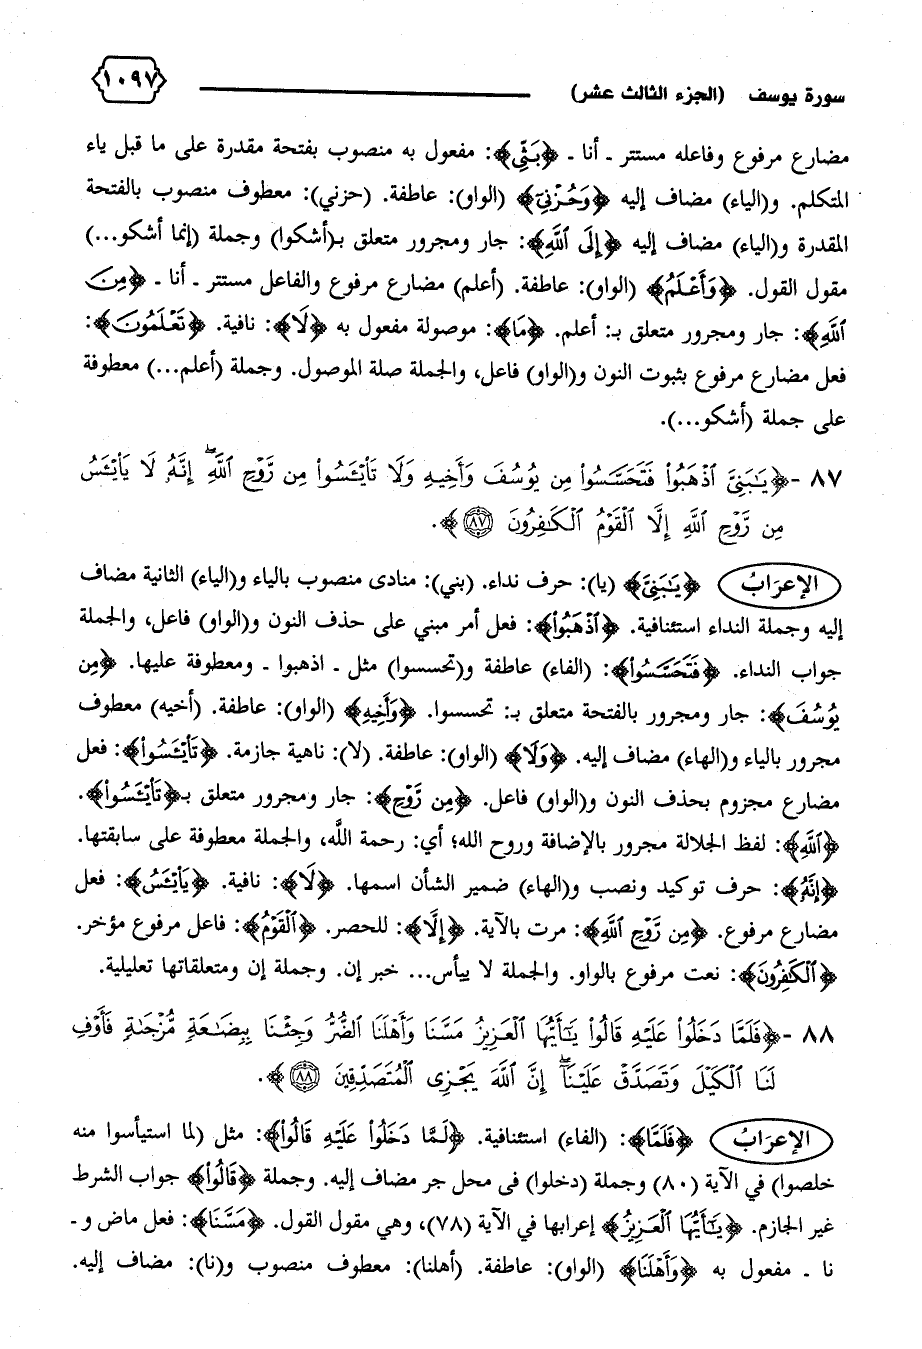 سورة يوسف (الجزء الثالث عشر) ١٠٩٧
مضارع مرفوع وفاعله مستتر ـ أنا ـ ﴿بَثِّي﴾: مفعول به منصوب بفتحة مقدرة على ما قبل ياء
المتكلم. و(الياء) مضاف إليه ﴿وَحُزْنِيٓ﴾ (الواو): عاطفة. (حزني): معطوف منصوب بالفتحة
المقدرة و(الياء) مضاف إليه ﴿إِلَى ٱللَّهِ﴾: جار ومجرور متعلق بـ(أشكوا) وجملة (إنما أشكو...)
مقول القول. ﴿وَأَعْلَمُ﴾ (الواو): عاطفة. (أعلم) مضارع مرفوع والفاعل مستتر ـ أنا ـ ﴿مِنَ
ٱللَّهِ﴾: جار ومجرور متعلق بـ: أعلم. ﴿مَا﴾: موصولة مفعول به ﴿لَا﴾: نافية. ﴿تَعْلَمُونَ﴾:
فعل مضارع مرفوع بثبوت النون و(الواو) فاعل، والجملة صلة الموصول. وجملة (أعلم...) معطوفة
على جملة (أشكو...).
٨٧ -﴿يَٰبَنِيَّ ٱذْهَبُوا۟ فَتَحَسَّسُوا۟ مِن يُوسُفَ وَأَخِيهِ وَلَا تَا۟يْـَٔسُوا۟ مِن رَّوْحِ ٱللَّهِ ۖ إِنَّهُۥ لَا يَا۟يْـَٔسُ
مِن رَّوْحِ ٱللَّهِ إِلَّا ٱلْقَوْمُ ٱلْكَٰفِرُونَ ٨٧﴾.
الإعرَابُ ﴿يَٰبَنِيَّ﴾ (يا): حرف نداء. (بني): منادى منصوب بالياء و(الياء) الثانية مضاف
إليه وجملة النداء استئنافية. ﴿ٱذْهَبُوا۟﴾: فعل أمر مبني على حذف النون و(الواو) فاعل، والجملة
جواب النداء. ﴿فَتَحَسَّسُوا۟﴾: (الفاء) عاطفة و(تحسسوا) مثل ـ اذهبوا ـ ومعطوفة عليها. ﴿مِن
يُوسُفَ﴾: جار ومجرور بالفتحة متعلق بـ: تحسسوا. ﴿وَأَخِيهِ﴾ (الواو): عاطفة. (أخيه) معطوف
مجرور بالياء و(الهاء) مضاف إليه. ﴿وَلَا﴾ (الواو): عاطفة. (لا): ناهية جازمة. ﴿تَا۟يْـَٔسُوا۟﴾: فعل
مضارع مجزوم بحذف النون و(الواو) فاعل. ﴿مِن رَّوْحِ﴾: جار ومجرور متعلق بـ﴿تَا۟يْـَٔسُوا۟﴾.
﴿ٱللَّهِ﴾: لفظ الجلالة مجرور بالإضافة وروح الله؛ أي: رحمة اللَّه، والجملة معطوفة على سابقتها.
﴿إِنَّهُۥ﴾: حرف توكيد ونصب و(الهاء) ضمير الشأن اسمها. ﴿لَا﴾: نافية. ﴿يَا۟يْـَٔسُ﴾: فعل
مضارع مرفوع. ﴿مِن رَّوْحِ ٱللَّهِ﴾: مرت بالآية. ﴿إِلَّا﴾: للحصر. ﴿ٱلْقَوْمُ﴾: فاعل مرفوع مؤخر.
﴿ٱلْكَٰفِرُونَ﴾: نعت مرفوع بالواو. والجملة لا ييأس... خبر إن. وجملة إن ومتعلقاتها تعليلية.
٨٨ -﴿فَلَمَّا دَخَلُوا۟ عَلَيْهِ قَالُوا۟ يَٰٓأَيُّهَا ٱلْعَزِيزُ مَسَّنَا وَأَهْلَنَا ٱلضُّرُّ وَجِئْنَا بِبِضَٰعَةٍ مُّزْجَىٰةٍ فَأَوْفِ
لَنَا ٱلْكَيْلَ وَتَصَدَّقْ عَلَيْنَآ ۖ إِنَّ ٱللَّهَ يَجْزِى ٱلْمُتَصَدِّقِينَ ٨٨﴾.
الإعرَابُ ﴿فَلَمَّا﴾: (الفاء) استئنافية. ﴿لَمَّا دَخَلُوا۟ عَلَيْهِ قَالُوا۟﴾: مثل (لما استيأسوا منه
خلصوا) في الآية (٨٠) وجملة (دخلوا) فى محل جر مضاف إليه. وجملة ﴿قَالُوا۟﴾ جواب الشرط
غير الجازم. ﴿يَٰٓأَيُّهَا ٱلْعَزِيزُ﴾ إعرابها في الآية (٧٨)، وهي مقول القول. ﴿مَسَّنَا﴾: فعل ماض و ـ
نا ـ مفعول به ﴿وَأَهْلَنَا﴾ (الواو): عاطفة. (أهلنا): معطوف منصوب و(نا): مضاف إليه.